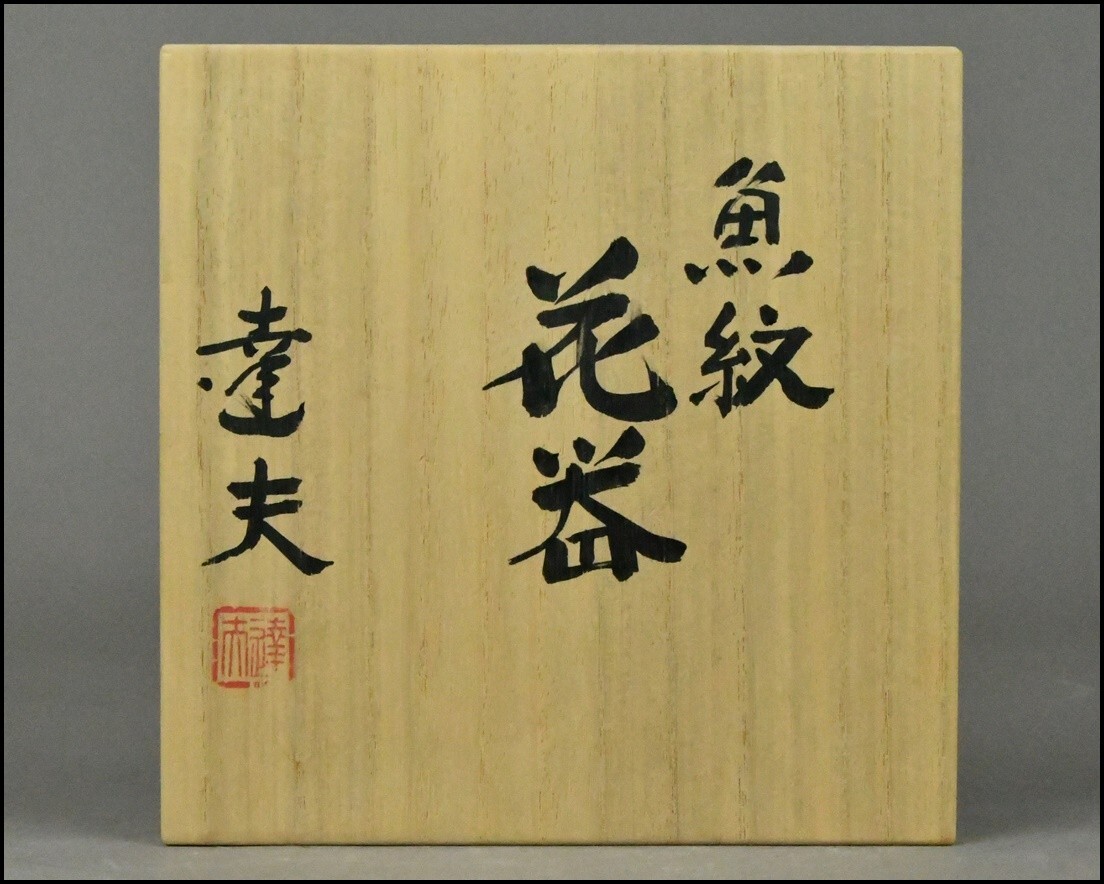 魚紋
花器
達夫
達夫